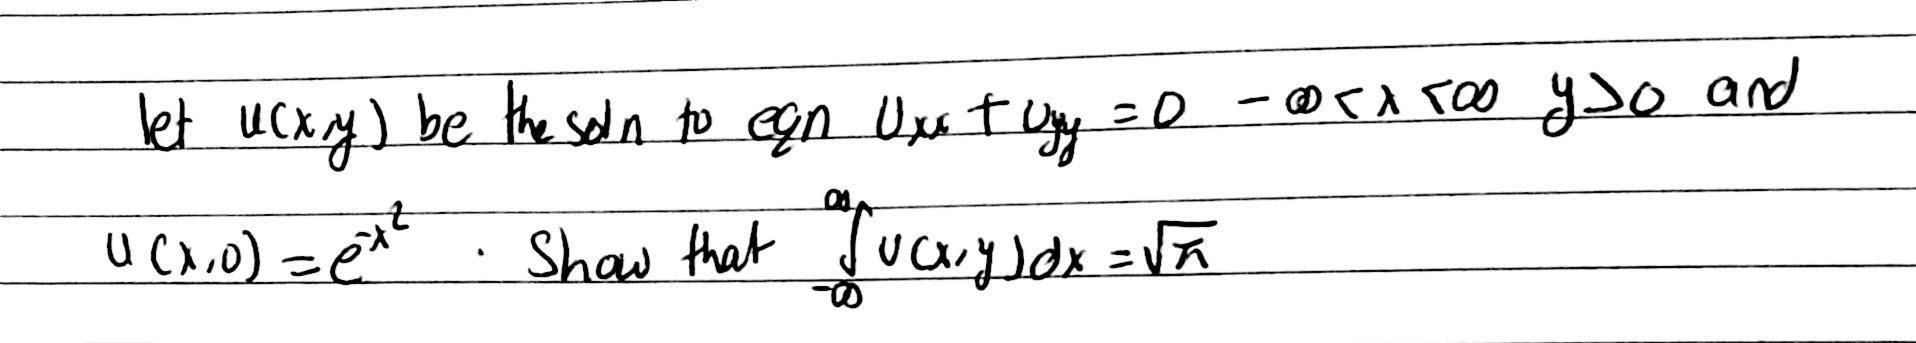 let u(x,y) be the soln to eqn Uxx + Uyy = 0 -∞<x<∞ y>0 and
u(x,0) = e^-x^2 . Show that ∫_-∞^∞ u(x,y)dx = √π